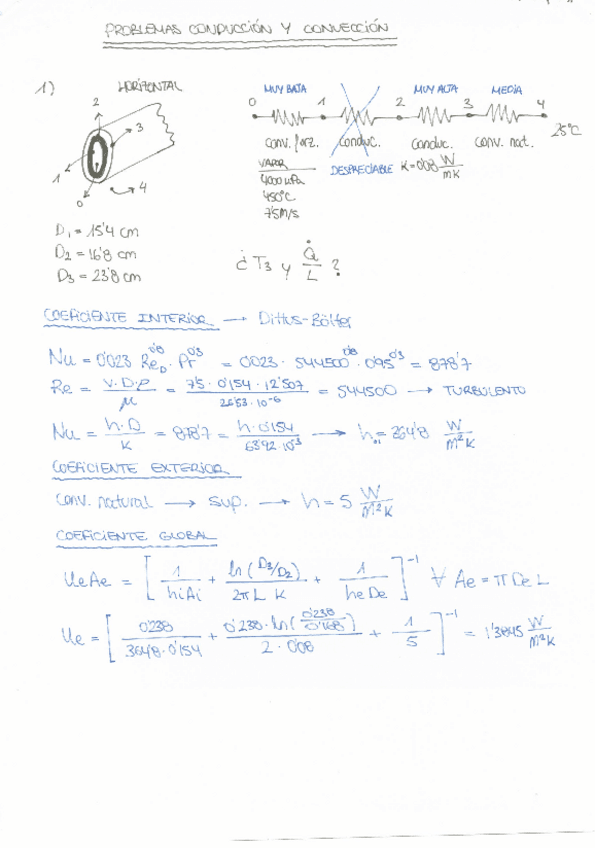 PROBLEMAS CONDUCCIÓN Y CONVECCIÓN
1)
HORIZONTAL
2
3
1
0
4
MUY BAJA MUY ALTA MEDIA
0 1 2 3 4
25ºC
conv. forz. conduc. conduc. conv. nat.
VAPOR
4000 kPa
450ºC
7'5 M/s
DESPRECIABLE K=0'08 W/mK
D1 = 15'4 cm
D2 = 16'8 cm
D3 = 23'8 cm
¿ T3 y Q̇/L ?
COEFICIENTE INTERIOR → Dittus-Bölter
Nu = 0'023 Re_D^0'8 · Pr^0'3 = 0'023 · 544500^0'8 · 0'95^0'3 = 878'7
Re = V·D·ρ/μ = 7'5 · 0'154 · 12'507 / 26'53·10^-6 = 544500 → TURBULENTO
Nu = h·D/k = 878'7 = h·0'154 / 63'92·10^-3 → h01 = 364'8 W/m²K
COEFICIENTE EXTERIOR
conv. natural → sup. → h = 5 W/m²K
COEFICIENTE GLOBAL
UeAe = [ 1/hiAi + ln(D3/D2)/2πLK + 1/heDe ]^-1 ∀ Ae = π De L
Ue = [ 0'238/364'8·0'154 + 0'238·ln(0'238/0'168)/2·0'08 + 1/5 ]^-1 = 1'3845 W/m²K